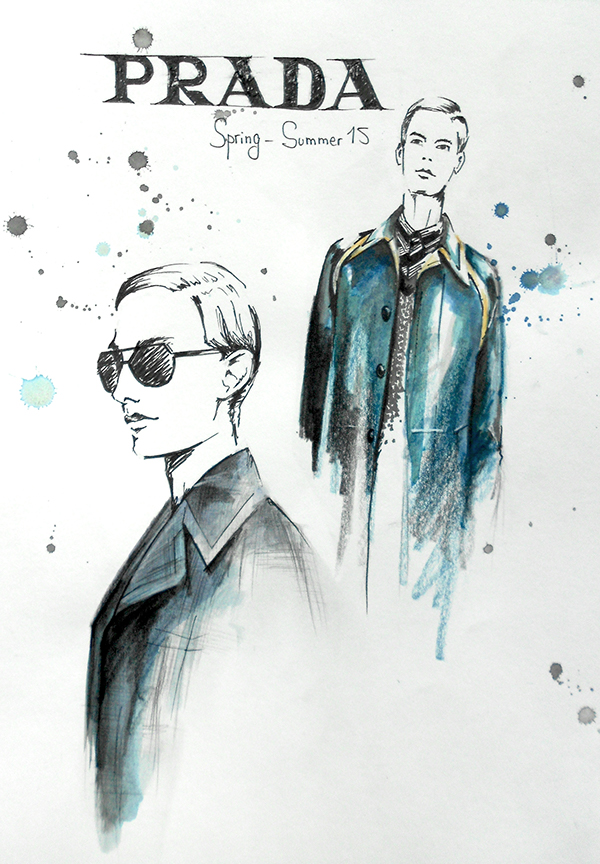 PRADA
Spring - Summer 15